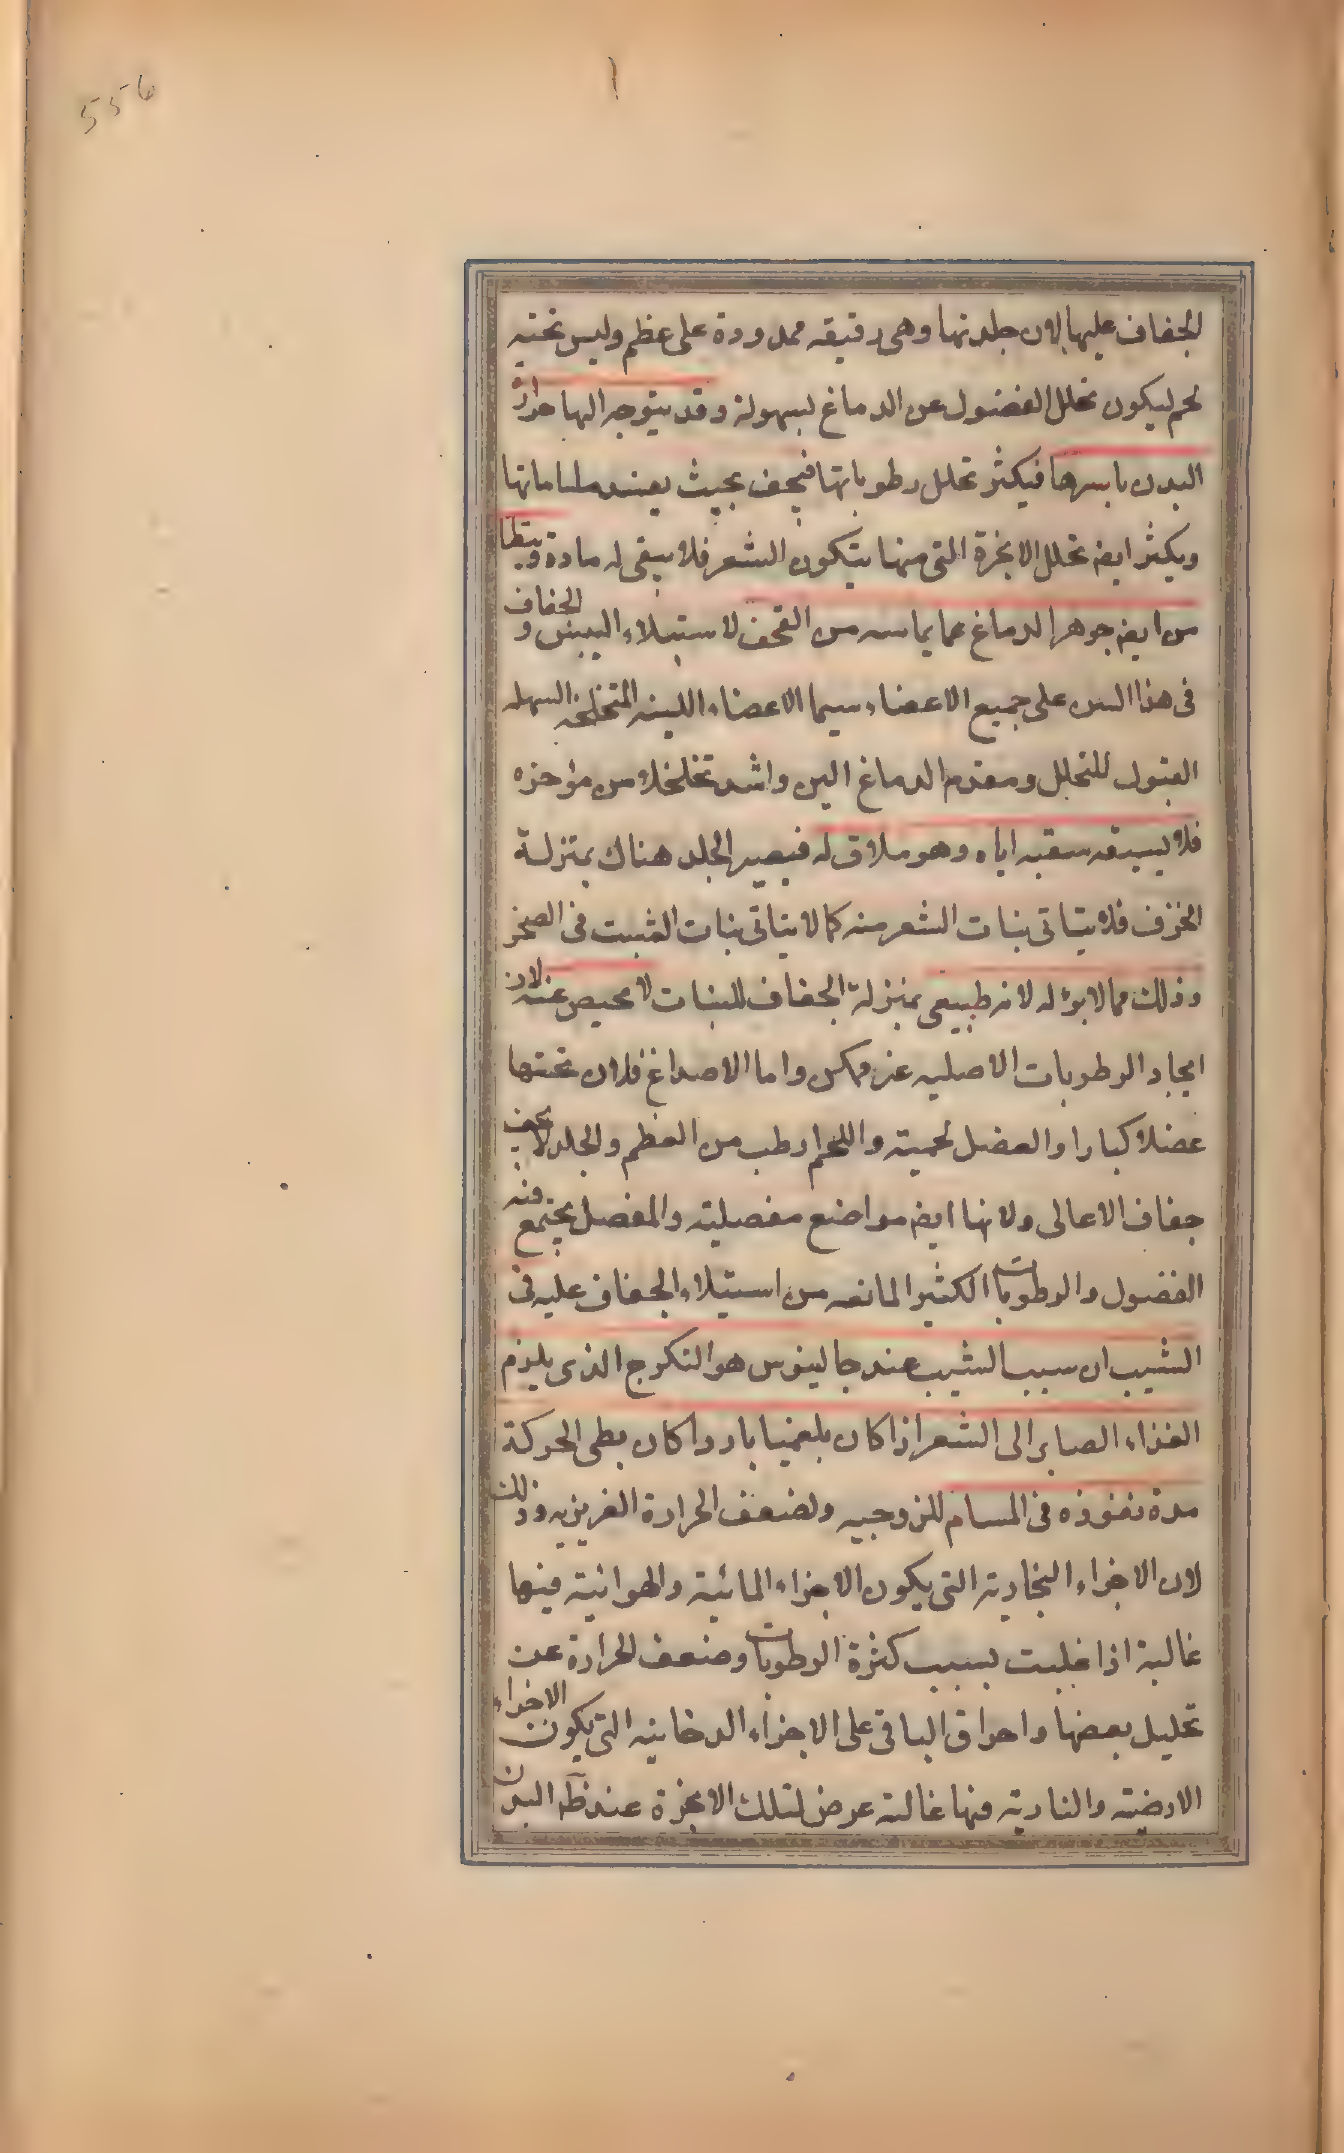 556
الجفاف عليها لان جلدتها وهى رقيقه ممدودة على عظم وليس تحته
لحم ليكون تحلل الفضول عن الدماغ بسهولة وقد يتوجه اليها حرارة
البدن باسرها فيكثر تحلل رطوباتها فيجف بحيث
ويكثر ايض تحلل الابخرة التى منها يتكون الشعر فلا يبقى له مادة
من ايض جوهر الدماغ عما يماسه من القحف لاستيلاء اليبس و الجفاف
فى هذا السن على جميع الاعضاء سيما الاعضاء اللينه المتخلخله السهله
القبول للتحلل ومقدم الدماغ الين واشد تخلخلا من مؤخره
فلا يسبقه سقيه اياه وهو ملاق له فيصير الجلد هناك بمنزلة
الخزف فلا يتاتى نبات الشعر منه كما لا يتاتى نبات العشب فى الصخر
وذلك مما لا برؤ له لانه طبيعى بمنزلة الجفاف للنبات لا محيص عنه لان
ايجاد الرطوبات الاصليه غير ممكن واما الاصداغ فلان تحتها
عضلا كبارا والعضل لحمية واللحم ارطب من العظم والجلد لا يجف
جفاف الاعالى ولانها ايض مواضع مفصلية والمفصل يجتمع فيه
الفضول والرطوبات الكثير المانعه من استيلاء الجفاف عليه فى
الشيب ان سبب الشيب عند جالينوس هو التكرج الذى يلزم
الغذاء الصاير الى الشعر اذا كان بلغميا باردا كان بطى الحركة
مدة نفوذه فى المسام للزوجيه ولضعف الحرارة الغريزيه وذلك
لان الاجزاء البخارية التى يكون الاجزاء المائية والهوائية فيها
غالبة اذا غلبت بسبب كثرة الرطوبات وضعف الحرارة عن
تحليل بعضها واحراق الباقى على الاجزاء الدخانيه التى يكون الاجزاء
الارضية والنارية فيها غالبة عرض لتلك الابخرة عند البدن